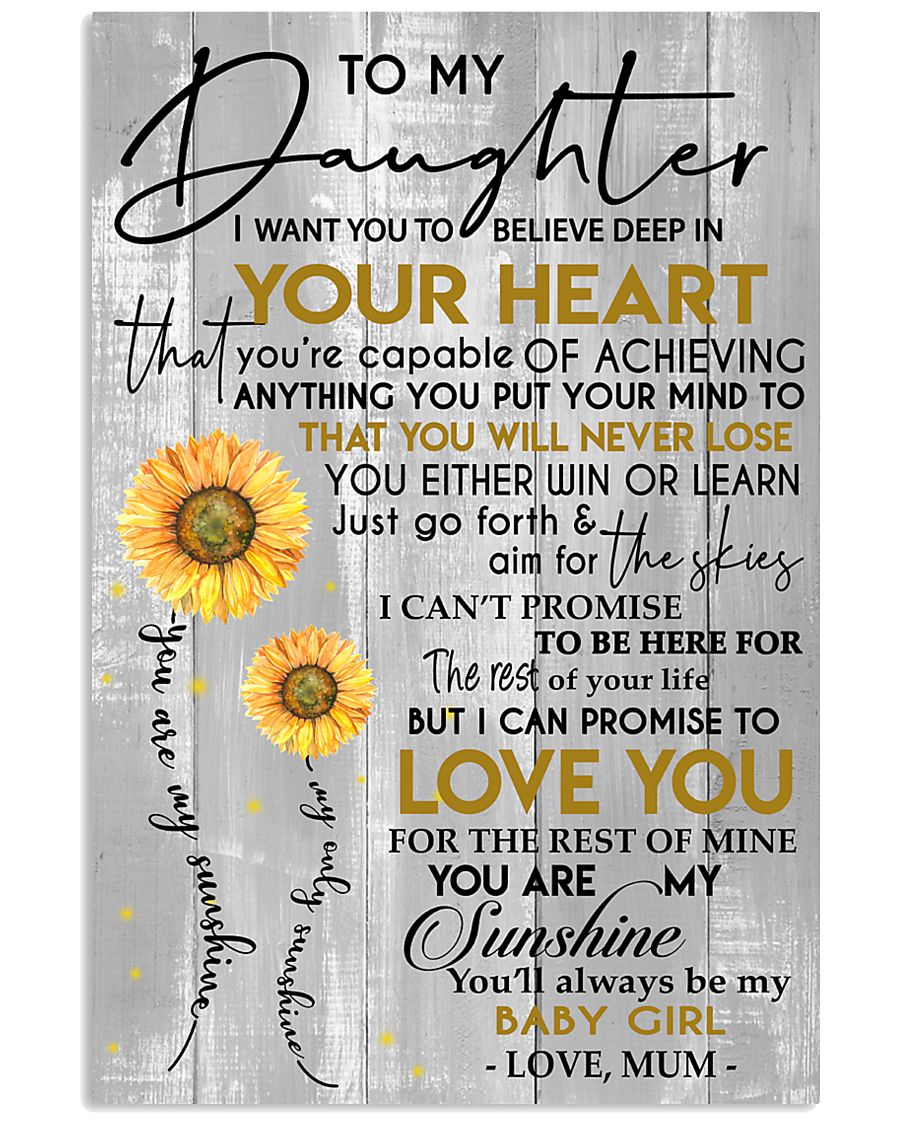 TO MY
Daughter
I WANT YOU TO BELIEVE DEEP IN
YOUR HEART
that you're capable OF ACHIEVING
ANYTHING YOU PUT YOUR MIND TO
THAT YOU WILL NEVER LOSE
YOU EITHER WIN OR LEARN
Just go forth &
aim for the skies
I CAN'T PROMISE
TO BE HERE FOR
The rest of your life
BUT I CAN PROMISE TO
LOVE YOU
FOR THE REST OF MINE
YOU ARE MY
Sunshine
You'll always be my
BABY GIRL
- LOVE, MUM -
you are my sunshine
my only sunshine